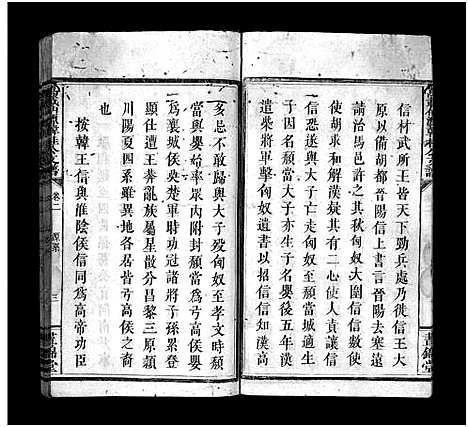 信材武所王皆天下勁兵處乃徙信王大
原以備胡都晉陽信上書言晉陽去塞遠
請治馬邑許之其秋匈奴大圍信信數使
使胡求和解漢疑其有二心使人責讓信
信恐遂與大子亡走匈奴信至頹當城適生
子因名頹當大子亦生子名嬰後五年漢
遣柴將軍擊匈奴遺書以招信信漢
多忌不敢歸與大子歿匈奴至孝文時頹
當與嬰率眾內附封頹當為弓高侯嬰
為襄城侯吳楚軍時功冠諸將子孫累登
顯仕遭王莽亂族屬星散分昌黎三原潁
川陽夏四系雖異地各居皆弓高侯之裔
也
按韓王信與淮陰侯信同為高帝功臣
卷二 源系 三 晝錦堂